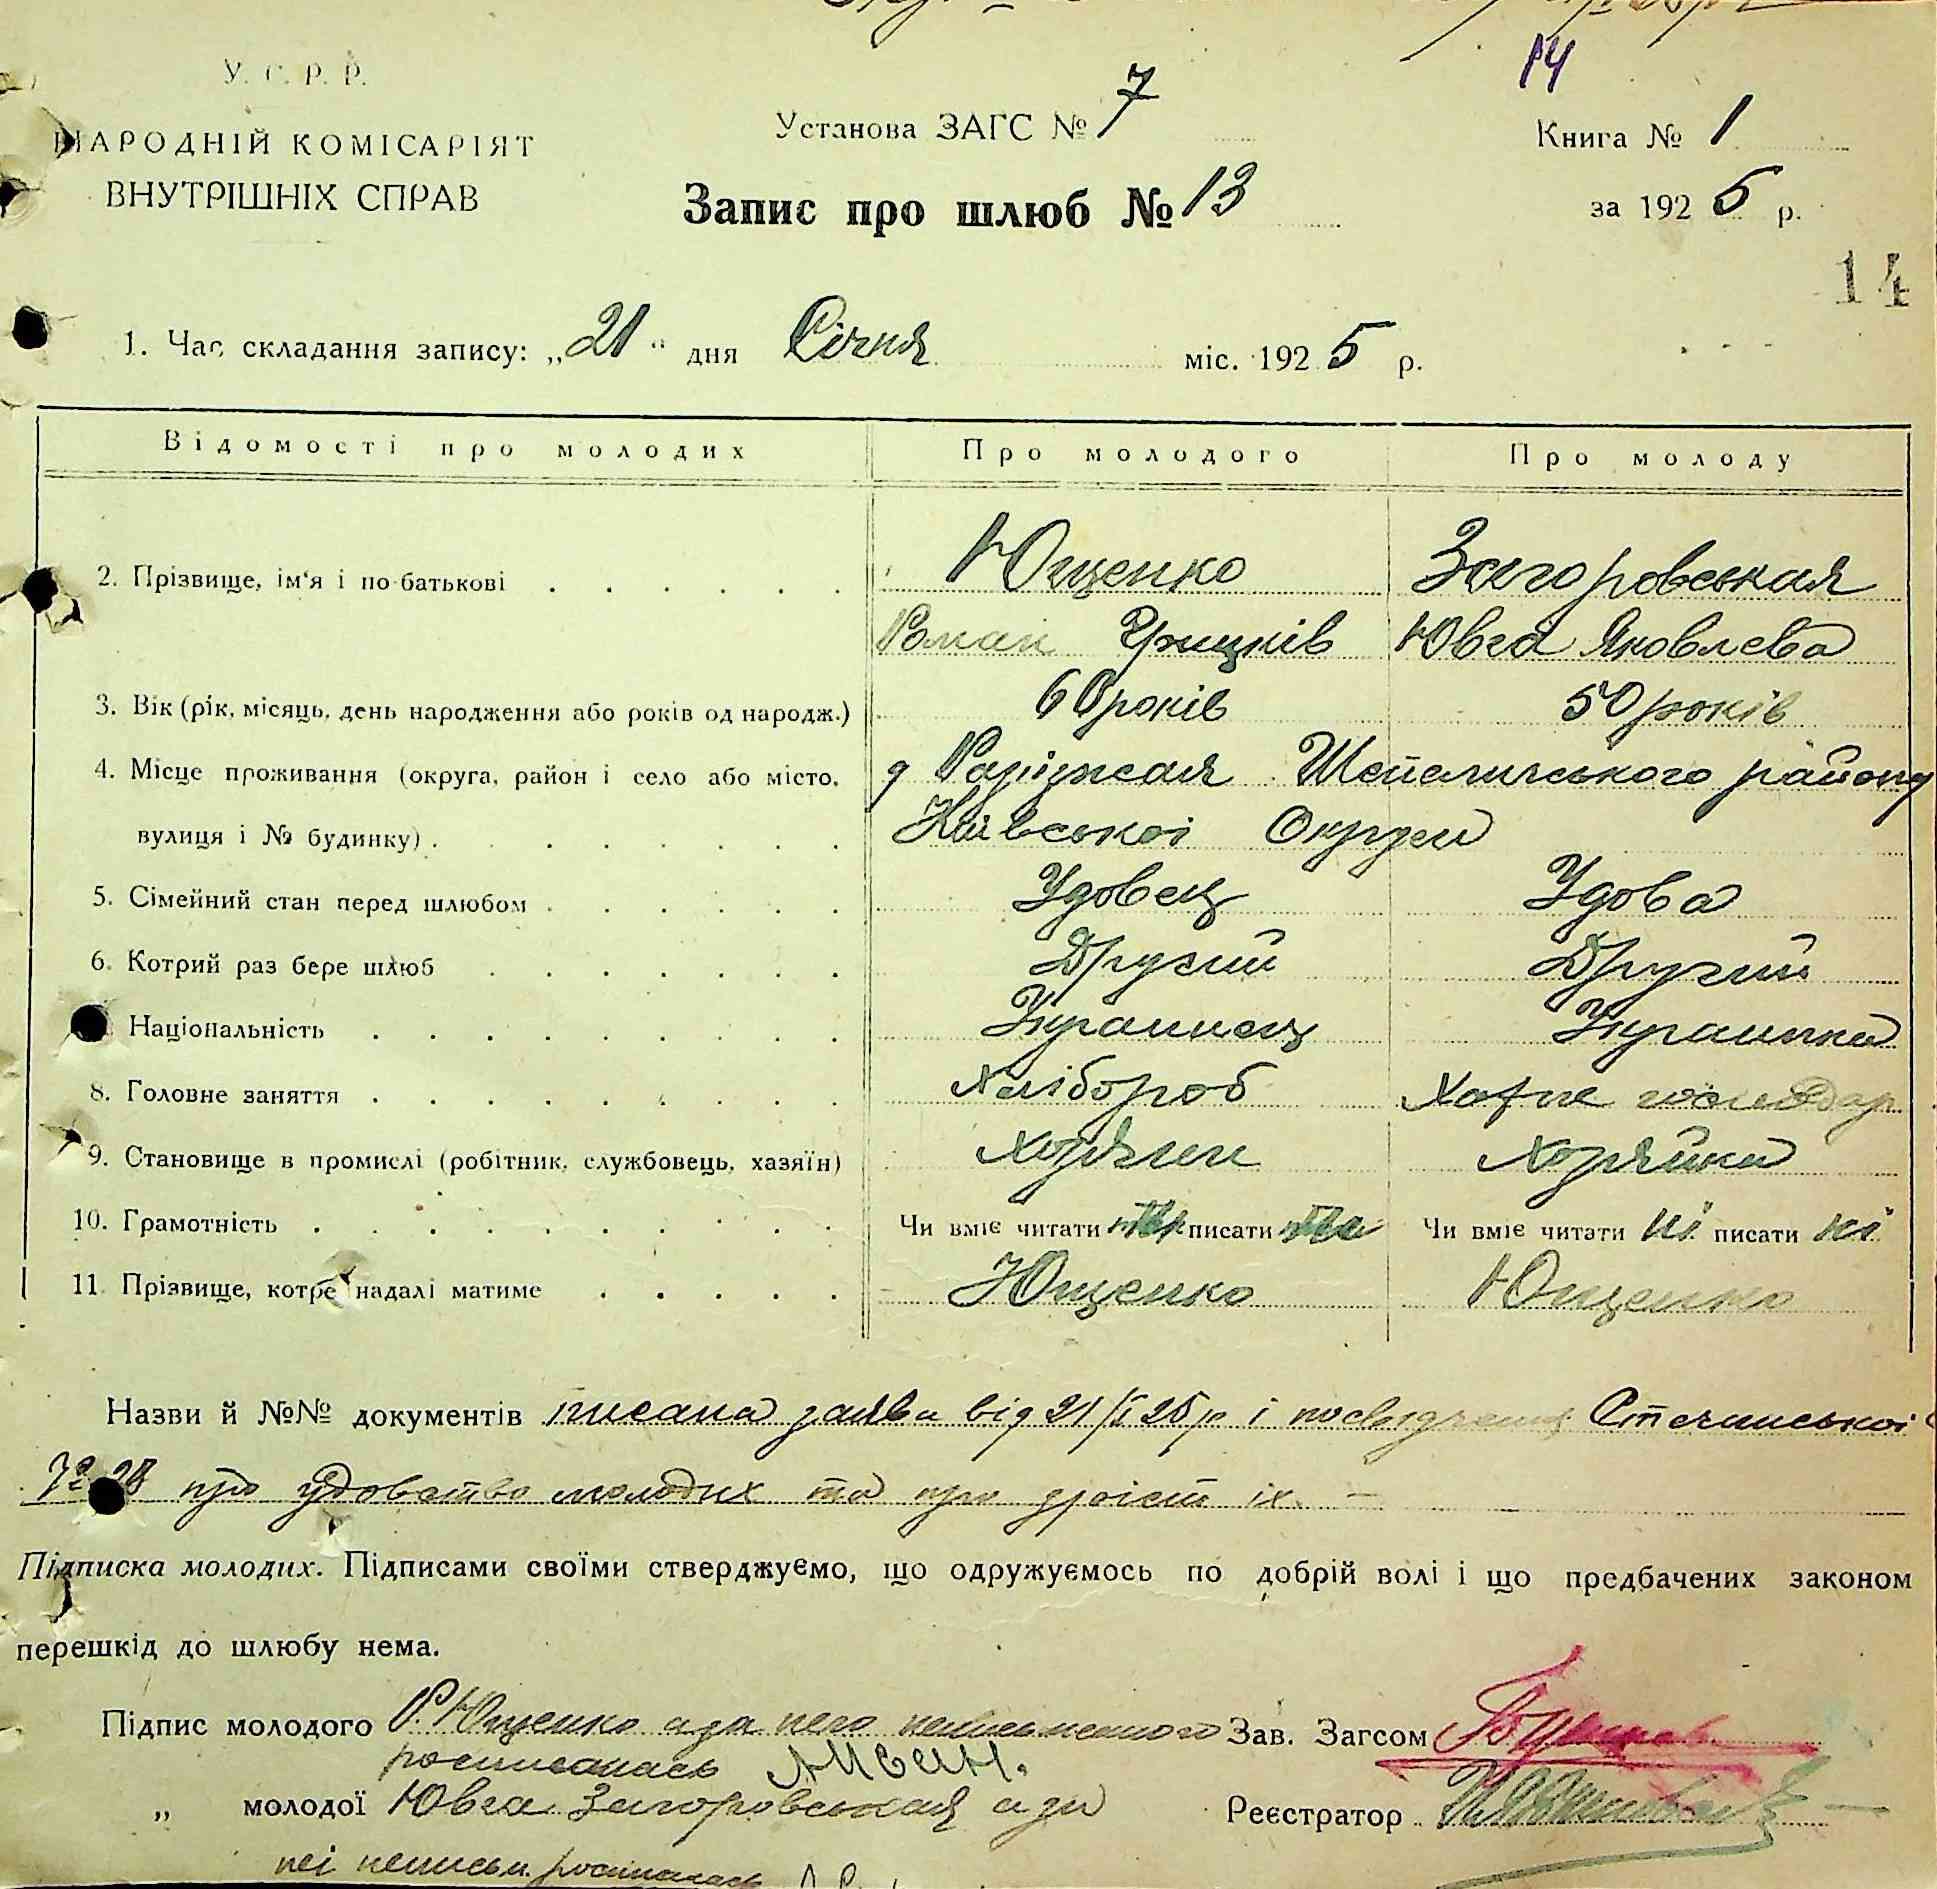 14
У. С. Р. Р.
НАРОДНІЙ КОМІСАРІЯТ
ВНУТРІШНІХ СПРАВ
Установа ЗАГС № 7
Книга № 1
Запис про шлюб № 13
за 1925 р.
14
1. Час складання запису: „21“ дня Січня міс. 1925 р.
Відомості про молодих Про молодого Про молоду
2. Прізвище, ім'я і по-батькові Ющенко Загоровськая
Роман Грицків Ювга Яковлєва
3. Вік (рік, місяць, день народження або років од народж.) 60 років 50 років
4. Місце проживання (округа, район і село або місто, Шепелицького району
вулиця і № будинку) Київської Округи
5. Сімейний стан перед шлюбом Удовец Удова
6. Котрий раз бере шлюб Другий Другий
Національність Украинец Украинка
8. Головне заняття Хлібороб Хатне господар
9. Становище в промислі (робітник, службовець, хазяїн) Хозяин Хозяйка
10. Грамотність Чи вміє читати писати Чи вміє читати ні писати ні
11. Прізвище, котре надалі матиме Ющенко Ющенко
Назви й №№ документів писана заява від 21/I 25 р і
про удовство молодих та про зріст їх. —
Підписка молодих. Підписами своїми стверджуємо, що одружуємось по добрій волі і що предбачених законом
перешкід до шлюбу нема.
Підпис молодого Р. Ющенко а за него неписьменного Зав. Загсом
росписалась
„ молодої Ювга Загоровськая а за
Реєстратор
неї неписьм. росписалась